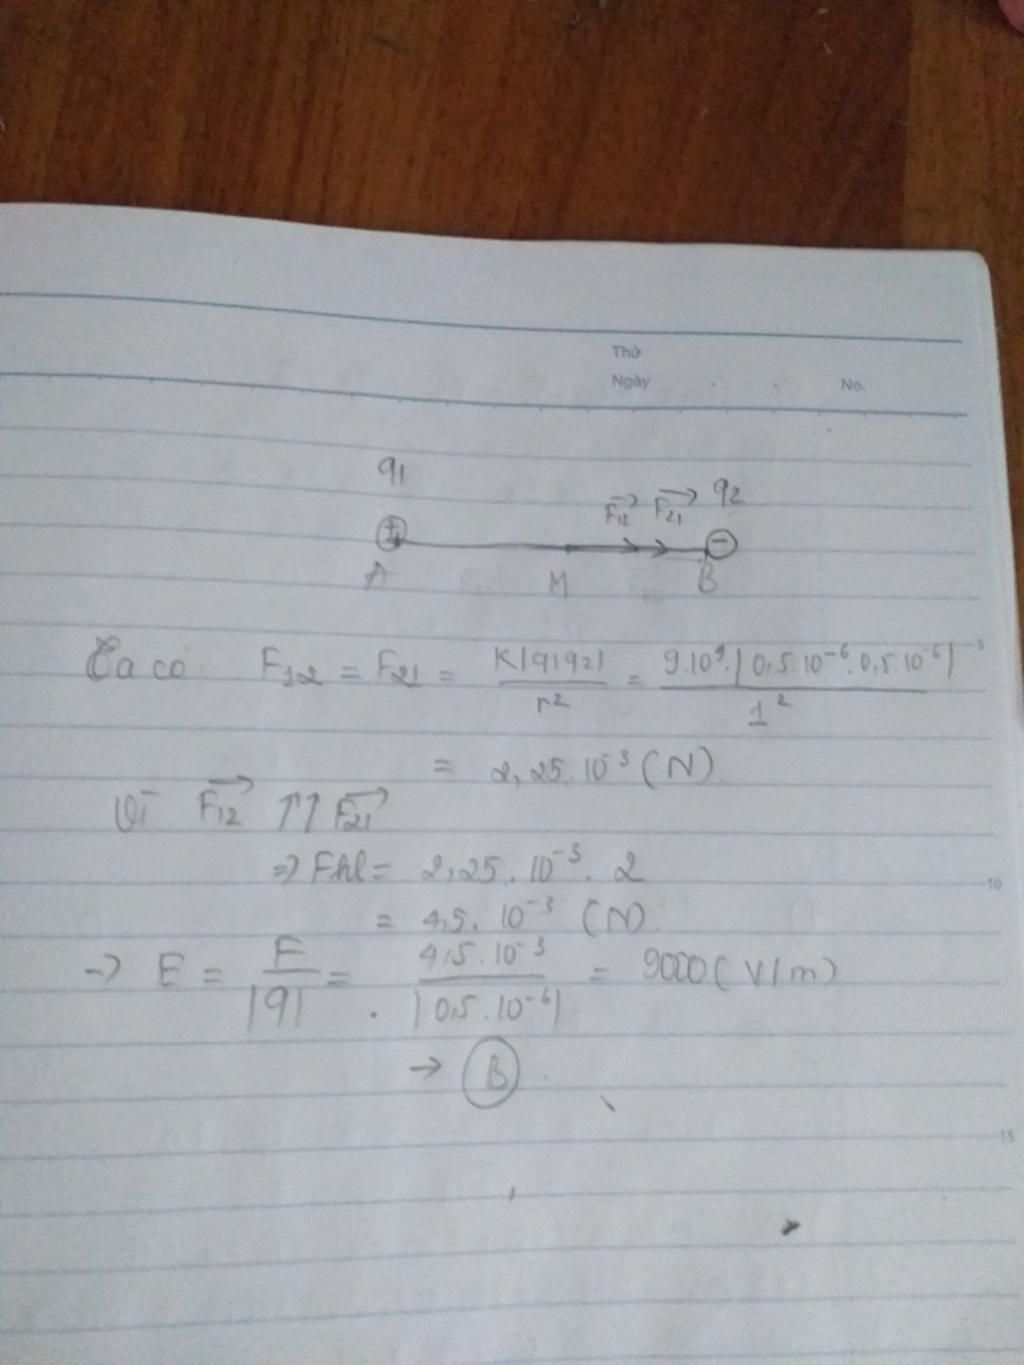 Thứ
Ngày No.
q1 q2
F12 F21
+ -
A M B
Ta có F12 = F21 = K|q1q2| / r² = 9.10⁹.|0,5.10⁻⁶.0,5.10⁻⁶| / 1²
= 2,25.10⁻³ (N)
Vì F12 ↑↑ F21
=> Fhl = 2,25.10⁻³.2
= 4,5.10⁻³ (N)
-> E = F / |q| = 4,5.10⁻³ / |0,5.10⁻⁶| = 9000 (V/m)
10
-> B
15